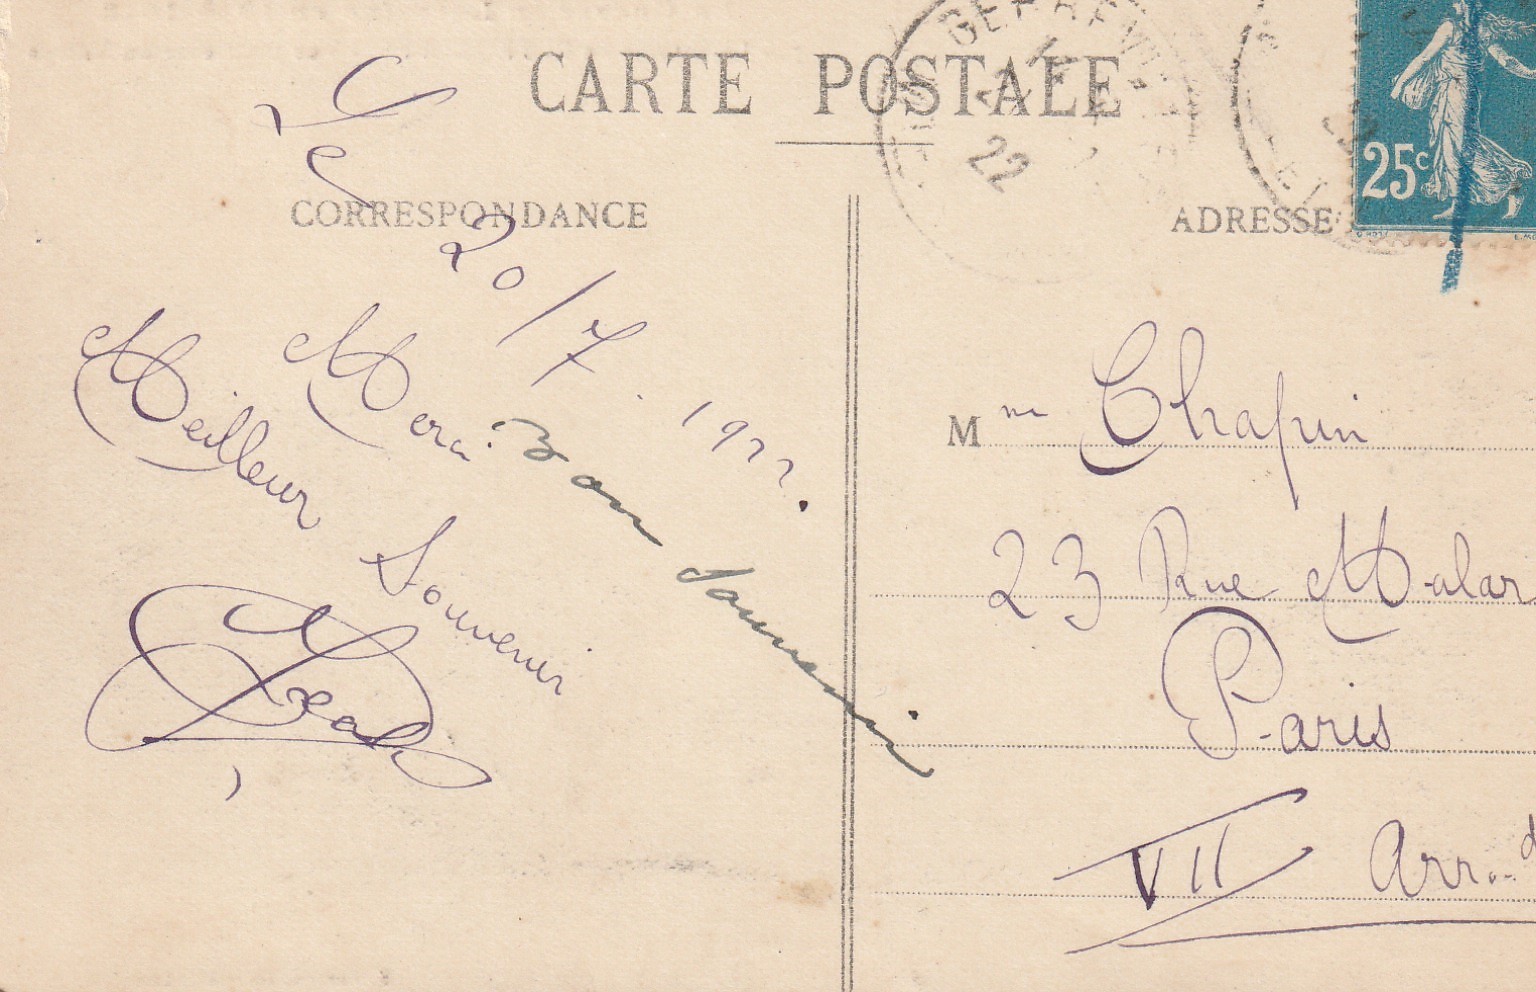 CARTE POSTALE
22
25c
CORRESPONDANCE
ADRESSE
Le 20/7. 1922.
Merci. Bon Souvenir
Meilleur Souvenir
Mme Chapin
23 Rue Malar
Paris
VII Arrond